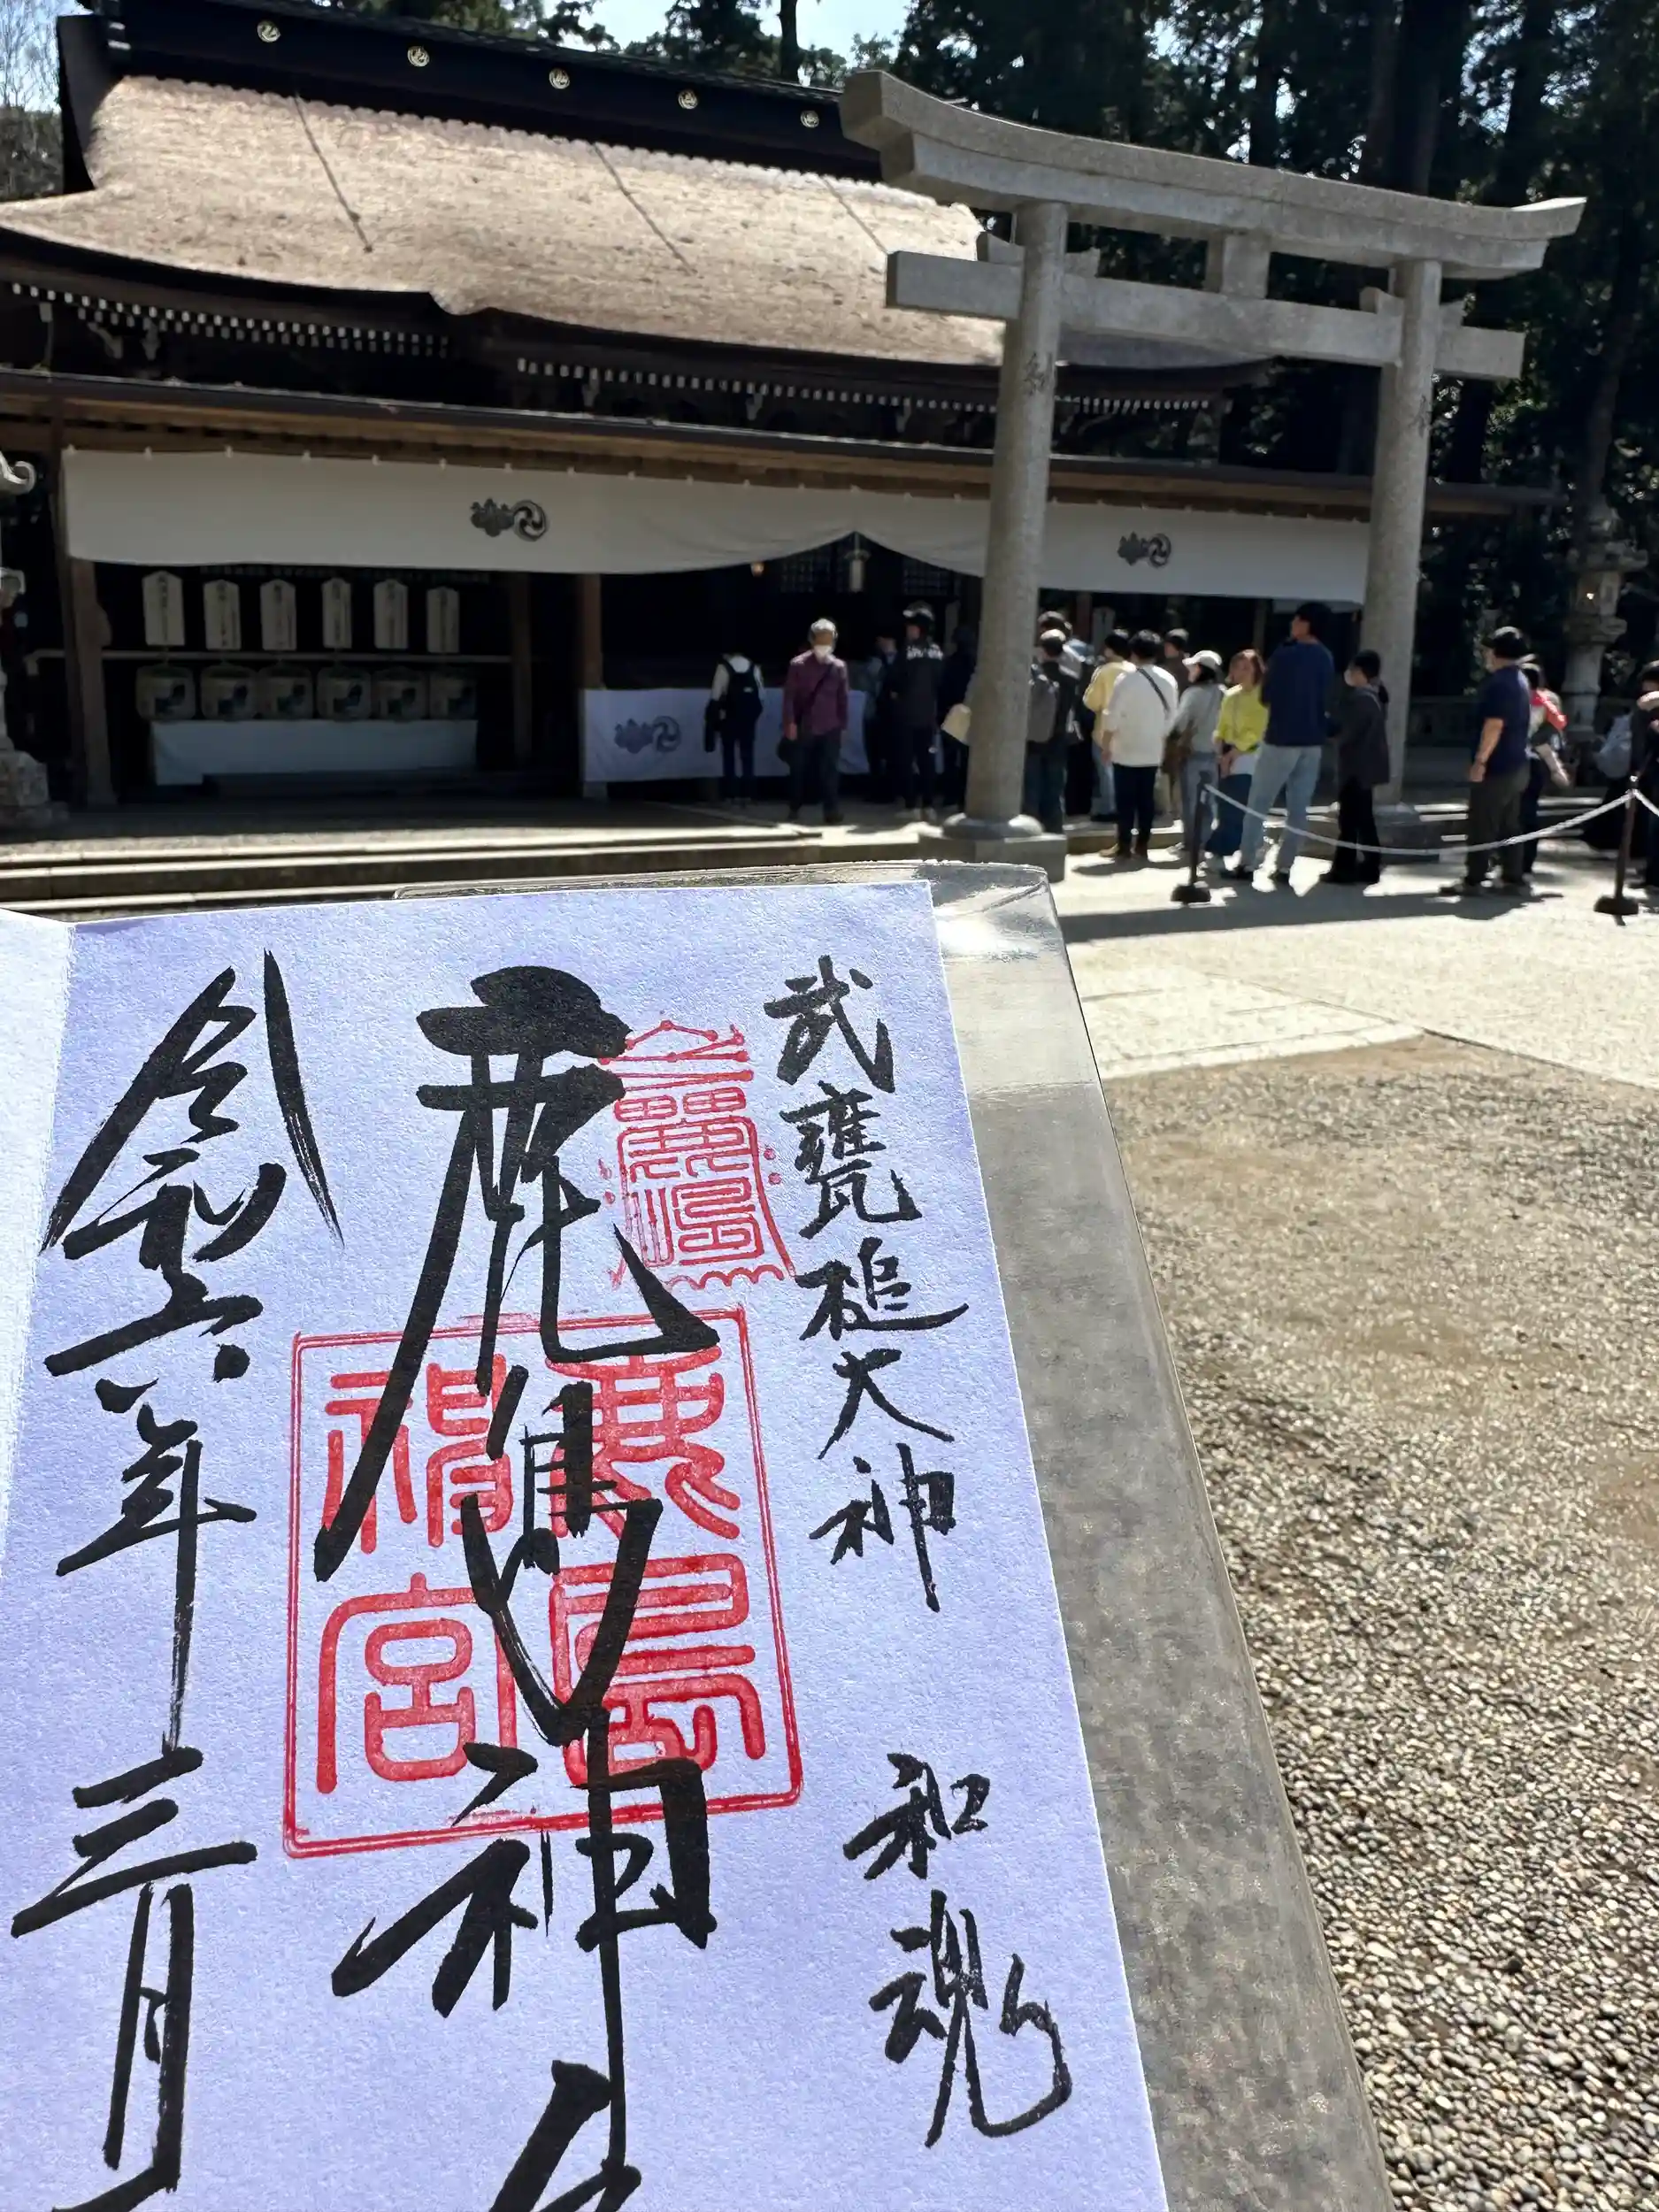 武甕槌大神 和魂
鹿島神
令和六年三月
鹿島
神宮